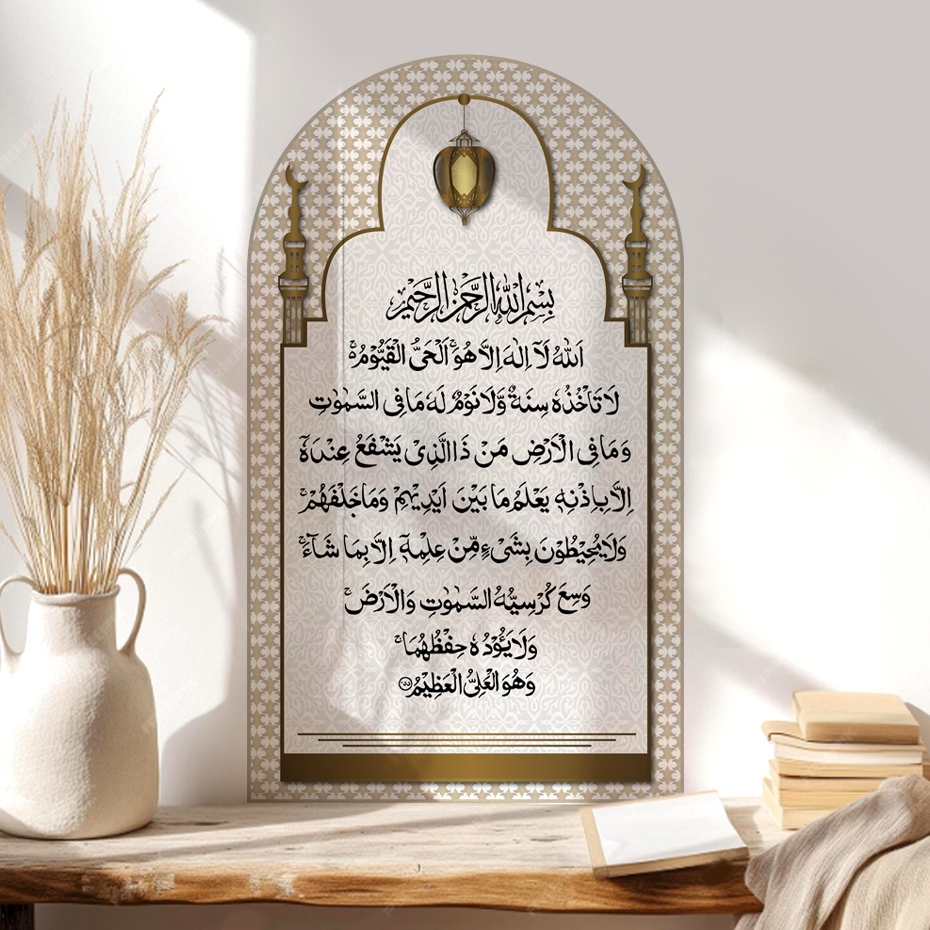 بِسْمِ اللهِ الرَّحْمٰنِ الرَّحِيْمِ
اَللهُ لَآ اِلٰهَ اِلَّا هُوَ ۚ اَلْحَىُّ الْقَيُّوْمُ ۚ
لَا تَاْخُذُهٗ سِنَةٌ وَّلَا نَوْمٌ ؕ لَهٗ مَا فِى السَّمٰوٰتِ
وَمَا فِى الْاَرْضِ مَنْ ذَا الَّذِىْ يَشْفَعُ عِنْدَهٗٓ
اِلَّا بِاِذْنِهٖ يَعْلَمُ مَا بَيْنَ اَيْدِيْهِمْ وَمَا خَلْفَهُمْ ۚ
وَلَا يُحِيْطُوْنَ بِشَىْءٍ مِّنْ عِلْمِهٖٓ اِلَّا بِمَا شَآءَ ۚ
وَسِعَ كُرْسِيُّهُ السَّمٰوٰتِ وَالْاَرْضَ ۚ
وَلَا يَئُوْدُهٗ حِفْظُهُمَا ۚ
وَهُوَ الْعَلِىُّ الْعَظِيْمُ ﴿۲۵۵﴾